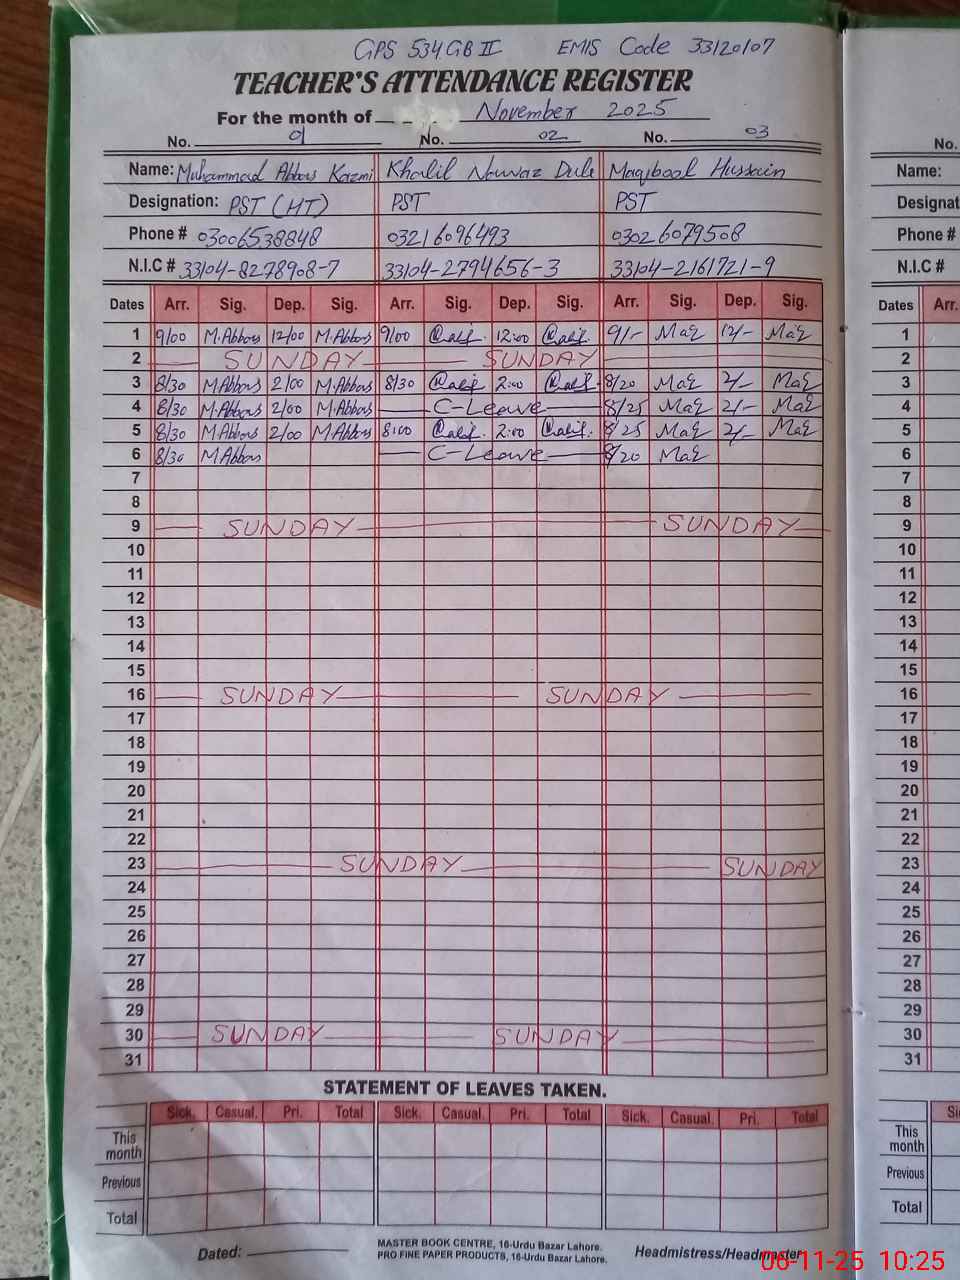 GPS 534 GB II EMIS Code 33120107
TEACHER'S ATTENDANCE REGISTER
For the month of November 2025
No. 01 No. 02 No. 03 No.
Name: Muhammad Abbas Kazmi Khalil Nawaz Maqbool Hussain Name:
Designation: PST (HT) PST PST Designat
Phone # 03006538848 03216096493 03026079508 Phone #
N.I.C # 33104-8278908-7 33104-2794656-3 33104-2161721-9 N.I.C #
Dates Arr. Sig. Dep. Sig. Arr. Sig. Dep. Sig. Arr. Sig. Dep. Sig. Dates Arr.
1 9/00 M.Abbas 12/00 M.Abbas 9/00 12:00 9/- Maq 12/- Maq 1
2 SUNDAY SUNDAY 2
3 8/30 M.Abbas 2/00 M.Abbas 8/30 2:00 8/20 Maq 2/- Maq 3
4 8/30 M.Abbas 2/00 M.Abbas C-Leave 8/25 Maq 2/- Maq 4
5 8/30 M.Abbas 2/00 M.Abbas 8:00 2:00 8/25 Maq 2/- Maq 5
6 8/30 M.Abbas C-Leave 8/20 Maq 6
7 7
8 8
9 SUNDAY SUNDAY 9
10 10
11 11
12 12
13 13
14 14
15 15
16 SUNDAY SUNDAY 16
17 17
18 18
19 19
20 20
21 21
22 22
23 SUNDAY SUNDAY 23
24 24
25 25
26 26
27 27
28 28
29 29
30 SUNDAY SUNDAY 30
31 31
STATEMENT OF LEAVES TAKEN.
Sick. Casual. Pri. Total Sick. Casual. Pri. Total Sick. Casual. Pri. Total Si
This month This month
Previous Previous
Total Total
Dated: MASTER BOOK CENTRE, 16-Urdu Bazar Lahore. Headmistress/Headmaster
PRO FINE PAPER PRODUCTS, 16-Urdu Bazar Lahore.
06-11-25 10:25